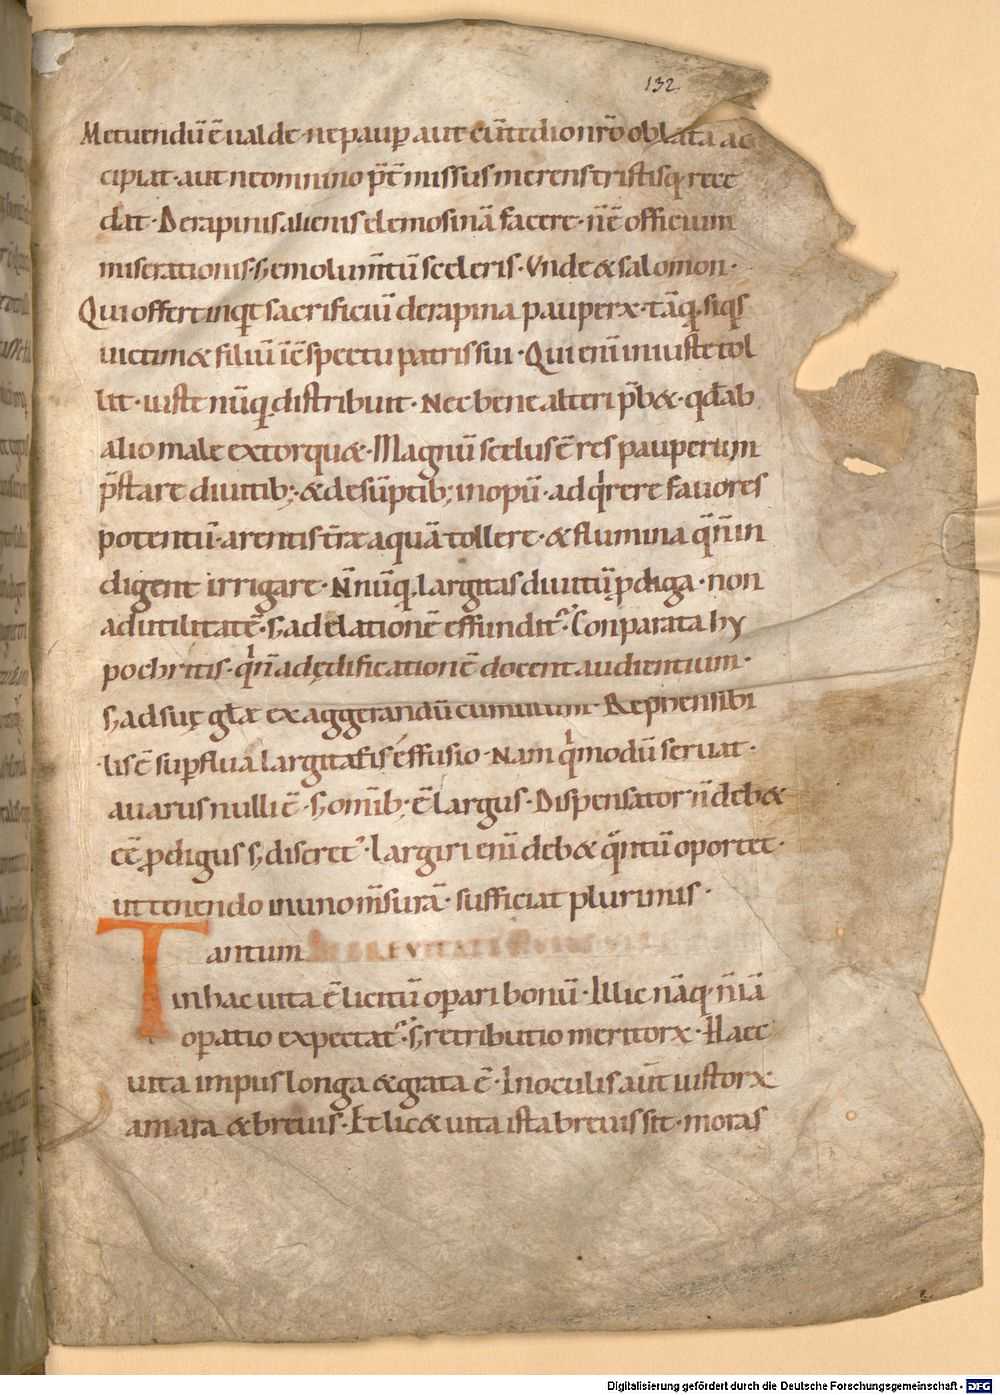 132.
Metuendū ē ualde· ne paup̄ aut cū tedio nr̄o oblata ac
cipiat· aut ne omnino p̄t̄missus merens tristisq; rece
dat· De rapinis alienis elemosinā facere· n̄ ē officium
miserationis· s; emolum̄tū sceleris· Vnde & salomon·
Qui offert inq̇t sacrificiū de rapina pauperx· tāq; siq̇s
uictim& filiū ī ɔspectu patris sui· Qui enī iniuste tol
lit· iuste nūq; distribuit· Nec bene alteri p̄b&· qd̄ ab
alio male extorqu&· Magnū scelus ē res pauperum
p̄stare diuitib;· & de sūptib; inopū· adq̇rere fauores
potentū· arentis t̄ræ aquā tollere· & flumina q̄ n̄ in
digent irrigare· N̄nūq; largitas diuitū p̱diga· non
ad utilitatē· s; ad elationē effundit᷑· Conparata hy
pochritis· q̇ n̄ ad ędificationē docent audientium·
s; ad suę gl̄æ exaggerandū cumulum· Reprehensibi
lis ē sup̱flua largitatis effusio· Nam q̇ modū seruat·
auarus nulli ē· s; omīb; ē largus· Dispensator n̄ deb&
eē p̱digus s; discret᷑· Largiri enī deb& q̄ntū oportet·
ut tenendo in uno m̄surā· sufficiat plurimis·
Tantum DE BREVITATE HVIVS VITE
in hac uita ē licitū op̱ari bonū· Illic nāq; n̄ iā
op̱atio expectat᷑· s; retributio meritorx· Haec
uita impiis longa & grata ē· In oculis aūt iustorx
amara & breuis· Et lic& uita ista breuis sit· moras
Digitalisierung gefördert durch die Deutsche Forschungsgemeinschaft - DFG